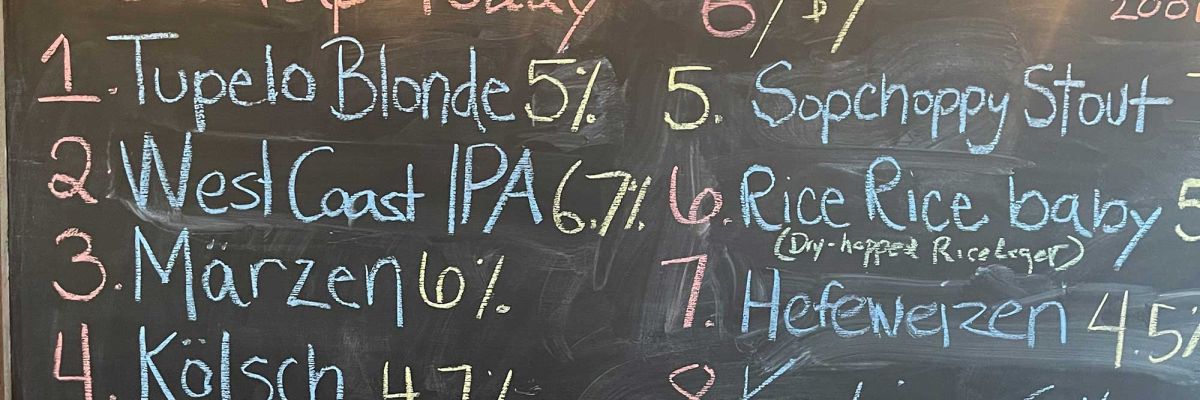 Tap Today
1. Tupelo Blonde 5%
2. West Coast IPA 6.7%
3. Märzen 6%
4. Kölsch 4.7%
5. Sopchoppy Stout
6. Rice Rice baby 5
(Dry-hopped Rice Lager)
7. Hefeweizen 4.5%
8.